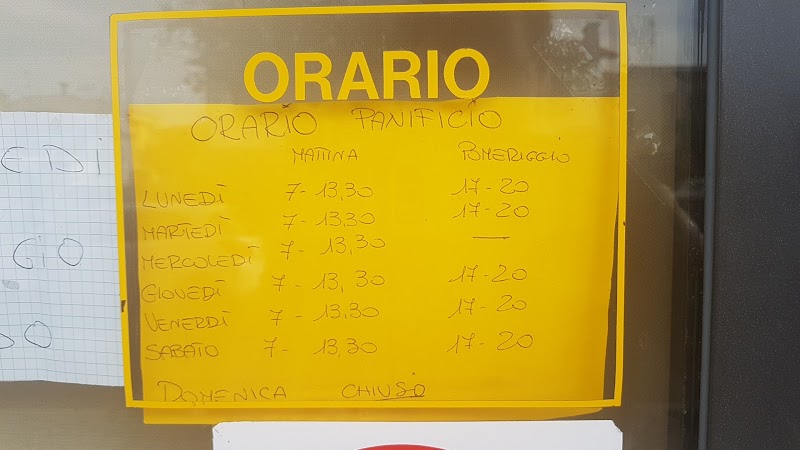 ORARIO
ORARIO PANIFICIO
MATTINA POMERIGGIO
LUNEDÌ 7-13,30 17-20
MARTEDÌ 7-13.30 17-20
MERCOLEDÌ 7-13,30 —
GIOVEDÌ 7-13,30 17-20
VENERDÌ 7-13.30 17-20
SABATO 7-13,30 17-20
DOMENICA CHIUSO